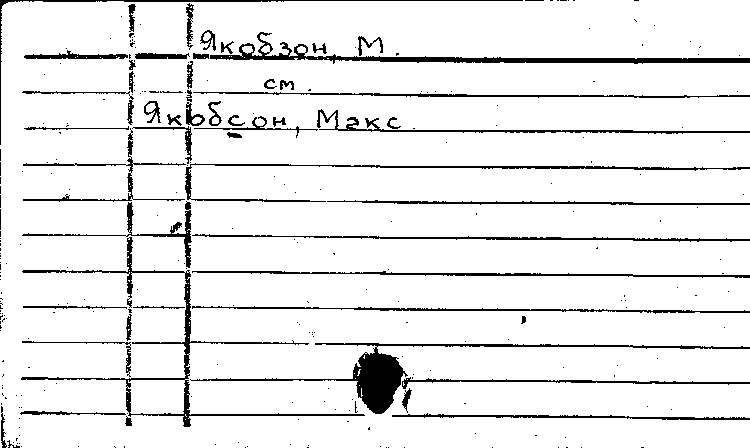 Якобзон, М.
см.
Якобсон, Макс